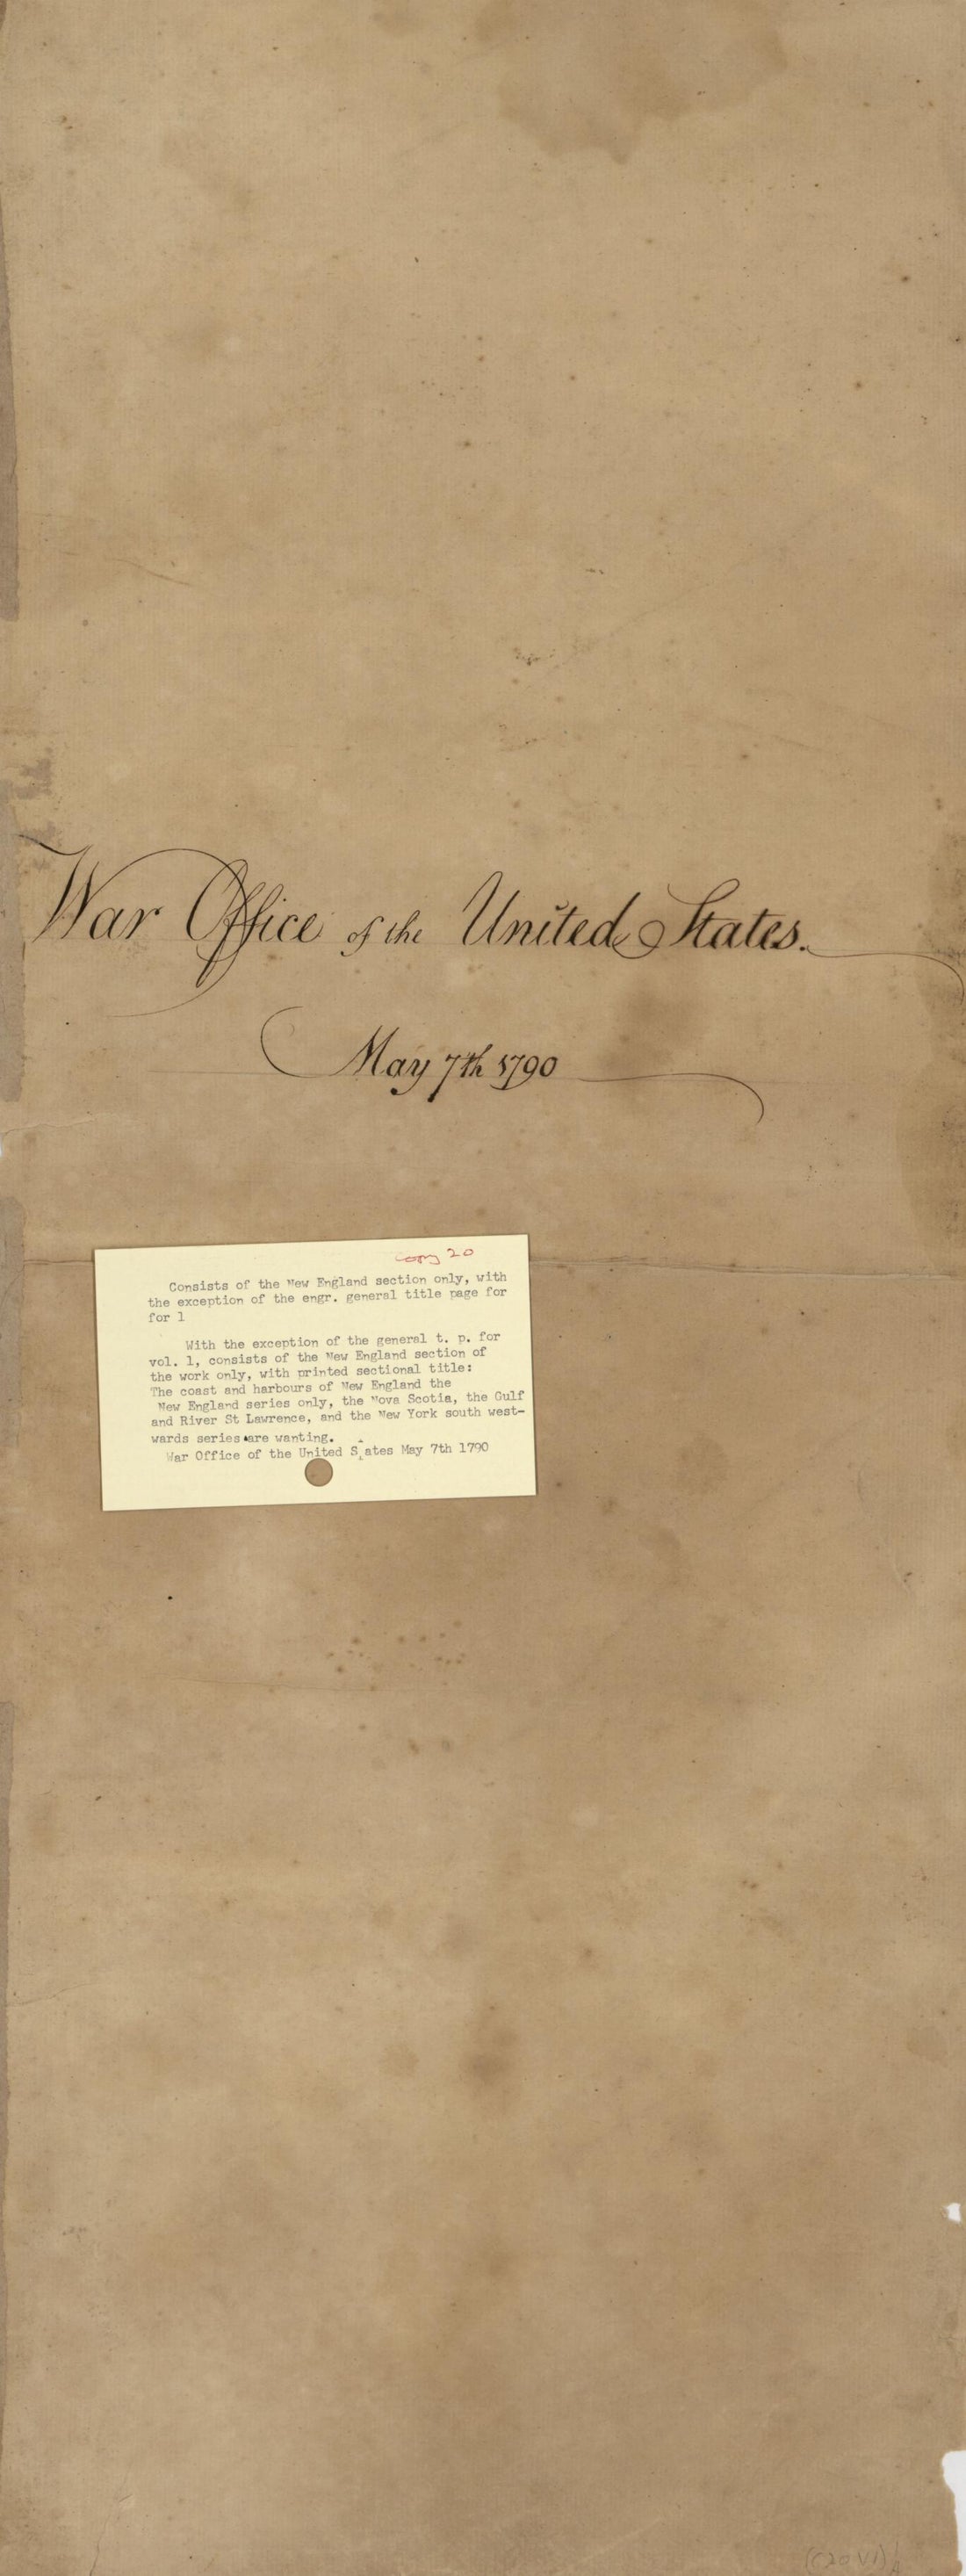 War Office of the United States.
May 7th 1790
Copy 20
Consists of the New England section only, with
the exception of the engr. general title page for
for 1
With the exception of the general t. p. for
vol. 1, consists of the New England section of
the work only, with printed sectional title:
The coast and harbours of New England the
New England series only, the Nova Scotia, the Gulf
and River St Lawrence, and the New York south west-
wards series are wanting.
War Office of the United S ates May 7th 1790